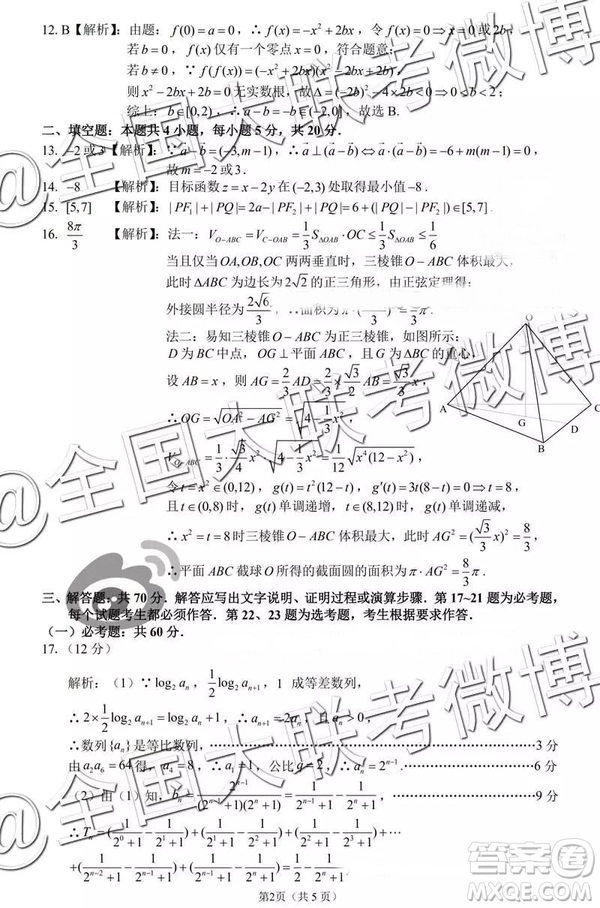 12. B【解析】：由题：f(0)=a=0，∴f(x)=-x²+2bx，令f(x)=0⇒x=0或2b；
若b=0，f(x)仅有一个零点x=0，符合题意；
若b≠0，∵f(f(x))=(-x²+2bx)(x²-2bx+2b)，
则x²-2bx+2b=0无实数根，故Δ=(-2b)²-4×2b<0⇒0<b<2；
综上：b∈[0,2)，∴a-b=-b∈(-2,0]，故选B.
二、填空题：本题共4小题，每小题5分，共20分．
13. -2或3【解析】：∵a-b=(-3,m-1)，∴a⊥(a-b)⇔a·(a-b)=-6+m(m-1)=0，
故m=-2或3．
14. -8 【解析】：目标函数z=x-2y在(-2,3)处取得最小值-8．
15. [5,7] 【解析】：|PF₁|+|PQ|=2a-|PF₂|+|PQ|=6+(|PQ|-|PF₂|)∈[5,7].
16. 8π/3 【解析】：法一：V_{O-ABC}=V_{C-OAB}=1/3 S_{ΔOAB}·OC≤1/3 S_{ΔOAB}≤1/6
当且仅当OA,OB,OC两两垂直时，三棱锥O-ABC体积最大，
此时ΔABC为边长为2√2的正三角形，由正弦定理得：
外接圆半径为2√6/3，∴面积为π·(2√6/3)²=8/3 π．
法二：易知三棱锥O-ABC为正三棱锥，如图所示：
D为BC中点，OG⊥平面ABC，且G为ΔABC的重心，
设AB=x，则AG=2/3 AD=2/3×√3/2 AB=√3/3 x，
∴OG=√(OA²-AG²)=√(4-1/3 x²)，
V_{O-ABC}=1/3·√3/4 x²·√(4-1/3 x²)=1/12 √(x⁴(12-x²))，
令t=x²∈(0,12)，g(t)=t²(12-t)，g′(t)=3t(8-t)=0⇒t=8
且t∈(0,8)时，g(t)单调递增，t∈(8,12)时，g(t)单调递减，
∴x²=t=8时三棱锥O-ABC体积最大，此时AG²=(√3/3 x)²=8/3
∴平面ABC截球O所得的截面圆的面积为π·AG²=8/3 π．
O
A
G
B
D
C
三、解答题：共70分．解答应写出文字说明、证明过程或演算步骤．第17~21题为必考题，
每个试题考生都必须作答．第22、23题为选考题，考生根据要求作答．
（一）必考题：共60分．
17.（12分）
解析：（1）∵log₂aₙ，1/2 log₂aₙ₊₁，1 成等差数列，
∴2×1/2 log₂aₙ₊₁=log₂aₙ+1，∴aₙ₊₁=2aₙ，且a₁>0
∴数列{aₙ}是等比数列，……3分
由a₂a₆=64得，a₄=8，∴a₁=1，公比q=2，∴aₙ=2ⁿ⁻¹ ……6分
（2）由（1）知，bₙ=2ⁿ⁻¹/((2ⁿ⁻¹+1)(2ⁿ+1))=1/(2ⁿ⁻¹+1)-1/(2ⁿ+1) ……9分
∴Tₙ=(1/(2⁰+1)-1/(2¹+1))+(1/(2¹+1)-1/(2²+1))+(1/(2²+1)-1/(2³+1))+⋯
+(1/(2ⁿ⁻²+1)-1/(2ⁿ⁻¹+1))+(1/(2ⁿ⁻¹+1)-1/(2ⁿ+1))
第2页（共5页）
@全国大联考微博
@全国大联考微博
@全国大联考微博
答案圈
MXQE.COM